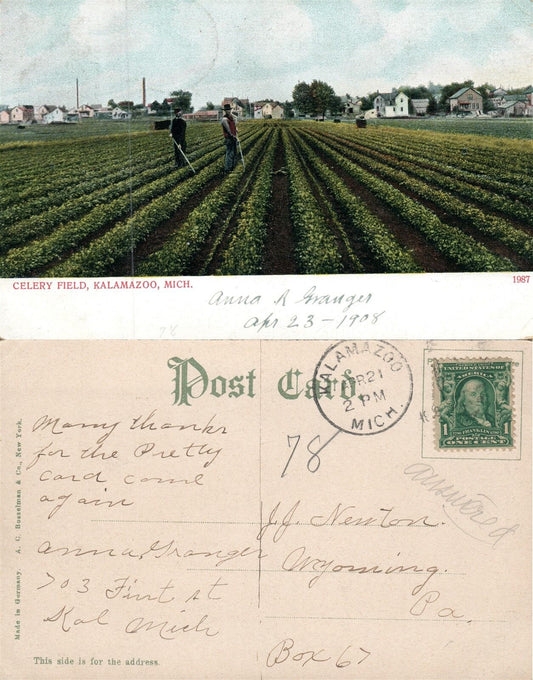 CELERY FIELD, KALAMAZOO, MICH.
1987
Anna R Granger
Apr 23 – 1908
78
Post Card.
KALAMAZOO
APR 21
2 PM
MICH.
UNITED STATES OF AMERICA
FRANKLIN
1 POSTAGE 1
ONE CENT
78
answered
Many thanks
for the Pretty
Card come
again
Anna, Granger
703 First st
Kal Mich
J.J. Newton.
Wyoming.
Pa.
Box 67
Made in Germany. A. C. Bosselman & Co., New York.
This side is for the address.